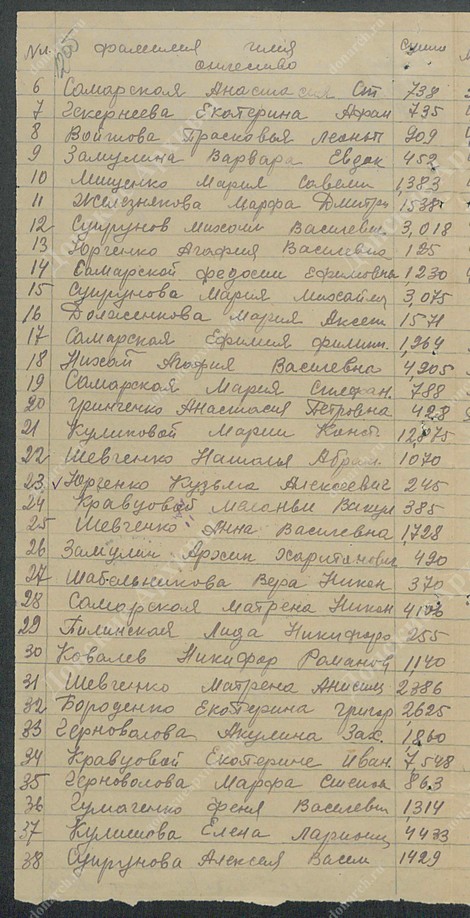 № фамилия имя отчество сумма
6 Самарская Анастасия Ст 738
7 Екатерина Абрам 735
8 Войтова Прасковья Леонт 909
9 Замулина Варвара Евдок 452
10 Мищенко Мария Савели 1,383
11 Железнякова Марфа Дмитри 1538
12 Супрунов Михаил Василев 3,018
13 Юрченко Агафия Василевна 125
14 Самарской Федосии Ефимовны 1230
15 Супрунова Мария Михайл 3,075
16 Мария Аксен 1571
17 Самарская Ефимия Филип 1,264
18 Нихай Агафия Василевна 4205
19 Самарская Мария Степан. 788
20 Гринченко Анастасия Петровна 428
21 Куликовой Марии Конст. 12,075
22 Шевченко Наталья Абрам. 1070
23 Юрченко Кузьма Алексеевич 245
24 Кравцовой Меланьи 385
25 Шевченко Анна Василевна 1,728
26 Замулин Архип Харитонович 420
27 Шабельникова Вера Никон 370
28 Самарская Матрена Никон
29 Пилинская Лида Никифоро 255
30 Ковалев Никифор Романов 1,140
31 Шевченко Матрена Анисим 2386
32 Бороденко Екатерина Григор 2625
33 Черноволова Акулина Зах. 1,860
34 Кравцовой Екатерине Иван. 7,548
35 Черноволова Марфа Степан 863
36 Чумаченко Феня Василев 1,314
37 Елена Ларион 4433
38 Супрунова Алексея Васил 1,429